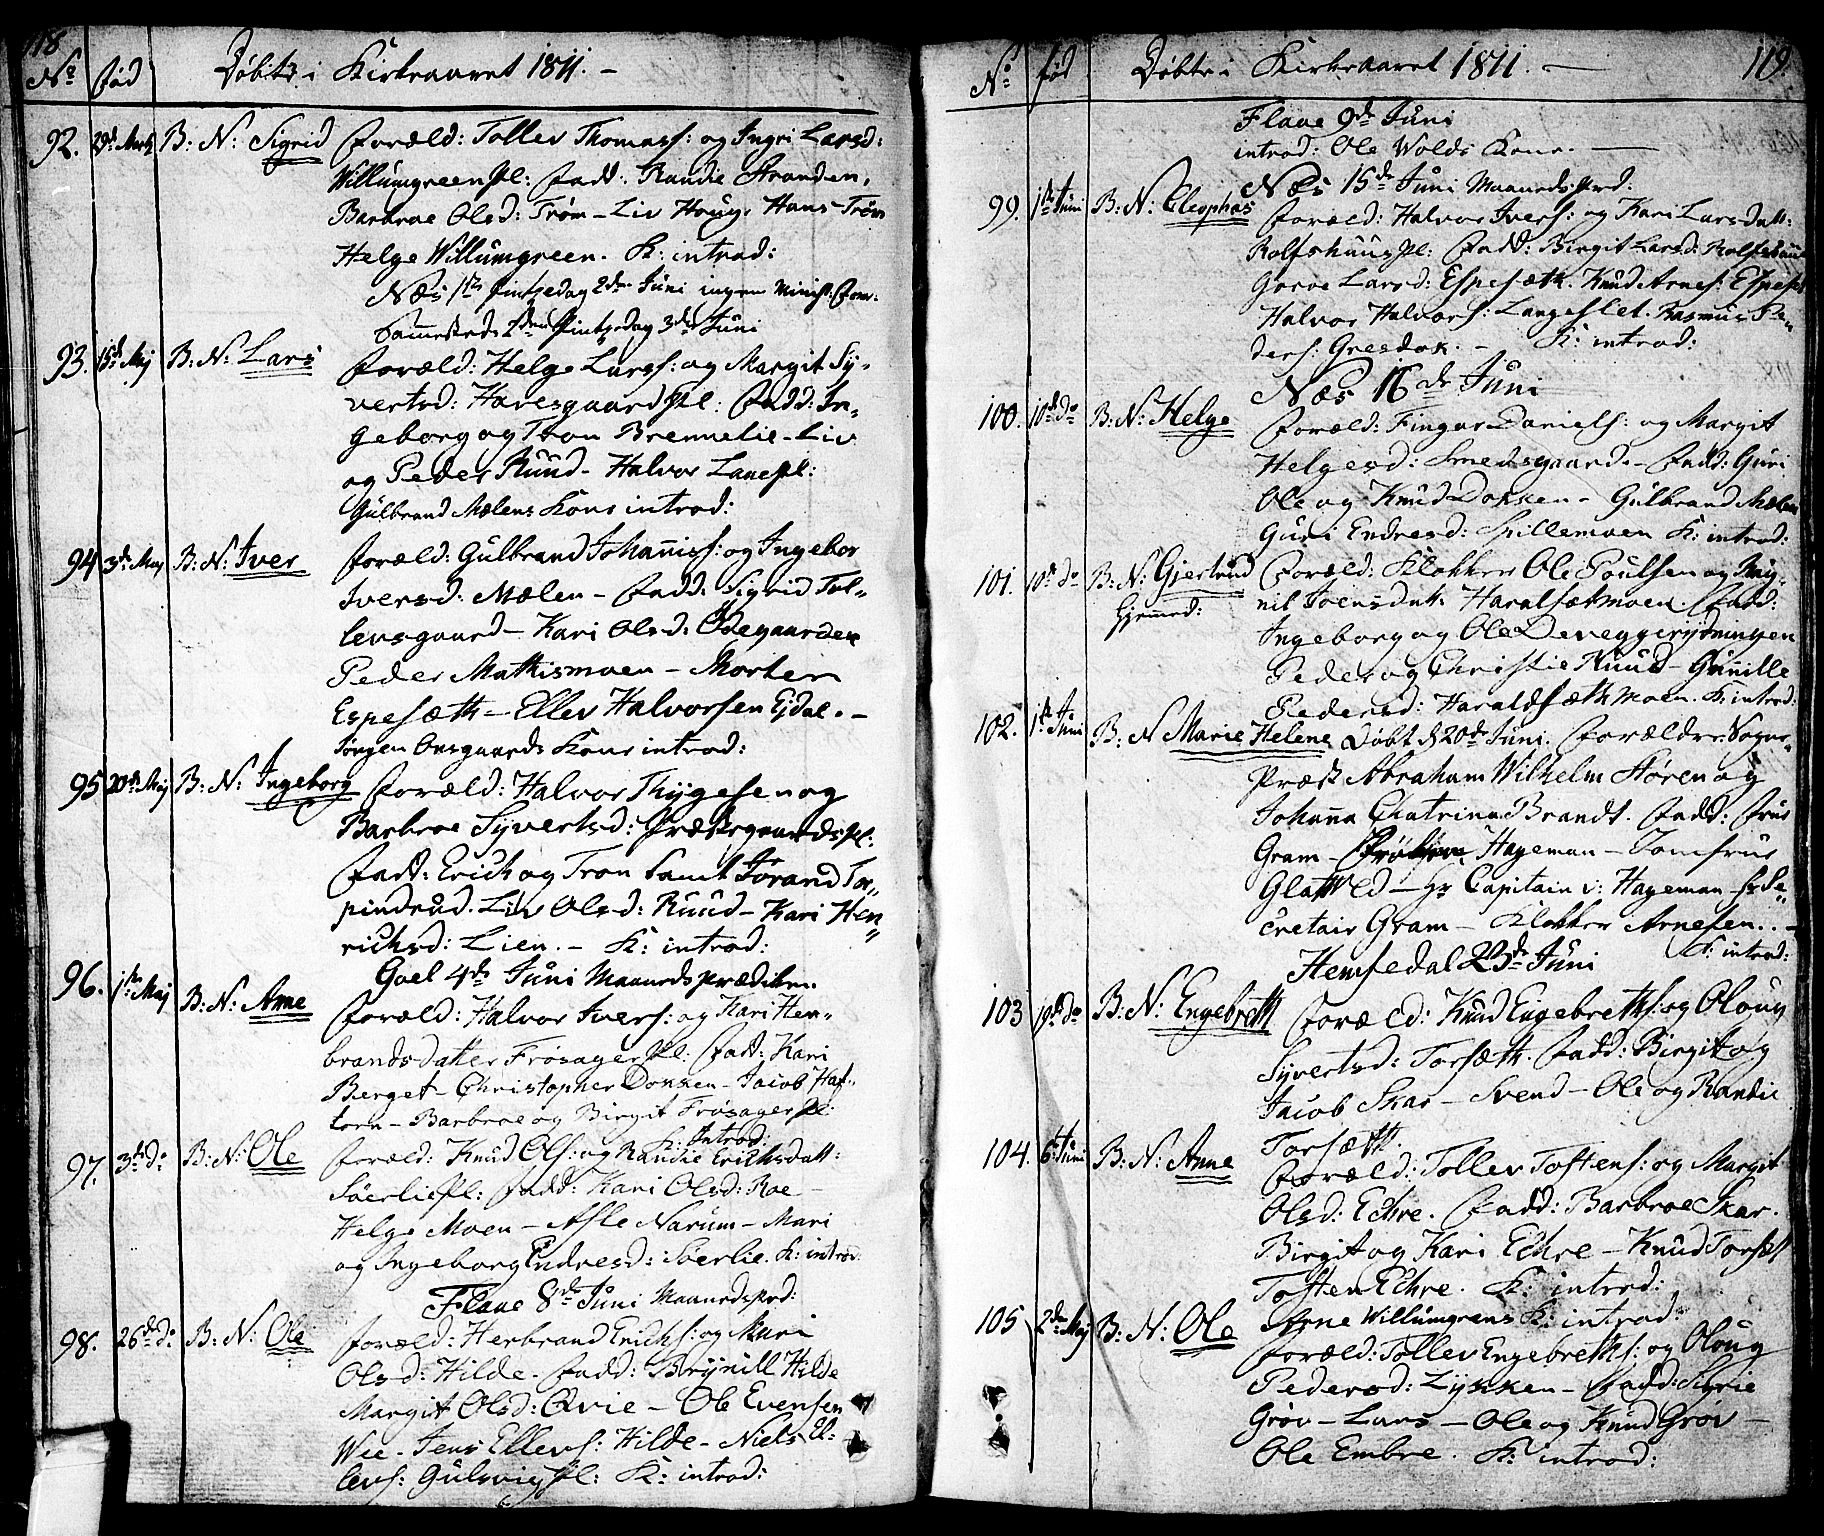 118
No fød Døbte i Kirkeaaret 1811. –
92. 29de Martz B: N: Sigrid foræld: Tollev Thomass: og Ingri Larsd:
Willumgreen Pl: fadd: Randie Stranden,
Barbroe Olsd: Trøm – Liv Houg, Hans Trøm
Helge Willumgreen. K: introd:
Næs 1ste Pintzedag 2den Juni ingen
Sammesteds 2den Pintzedag 3die Juni
93. 15de Maj B: N: Lars foræld: Helge Larss: og Margit Sy-
vertsd: Haresgaard Pl: fadd: In-
geborg og Tron Brennelie – Liv
og Peder Ruud – Halvor Lanepl:
Gulbrand Mælens Kone introd:
94 3de Maj B: N: Iver foræld: Gulbrand Johaniss: og Ingebor
Iversd: Mælen – fadd: Sigrid Tol-
levsgaard – Kari Olsd: Ødegaarden
Peder Mathismoen – Morten
Espesæth – Ellev Halvorsen Ejdal. –
Jørgen Onsgaards Kone introd:
95 20de Maj B: N: Ingeborg foræld: Halvor Thygesen og
Barbroe Syvertsd: Præstegaards Pl:
fadd: Erich og Tron samt Jørand Tor-
pindrud. Liv Olsd: Ruud – Kari Hen-
richsd: Lien. – K: introd:
Goel 4de Juni Maanedsprædiken.
96. 1ste Maj B: N: Arne foræld: Halvor Ivers: og Kari Hen-
brandsdatter Frøsager Pl: fadd: Kari
Berget – Christopher Donken – Jacob Haf-
torn – Barbroe og Birgit Frøsager Pl:
K: Introd:
97. 3de do B: N: Ole foræld: Knud Ols: og Randie Erichsdatt:
Søerlie Pl: fadd: Kari Olsd: Roe –
Helge Moen – Asle Narum – Mari
og Ingeborg Endresd: Søerlie. K: introd:
Flaae 8de Juni Maanedsprd:
98. 26de do B: N: Ole foræld: Herbrand Erichs: og Mari
Olsd: Hilde. fadd: Brynill Hilde
Margit Olsd: Qvie – Ole Evensen
Wie – Jens Ellevs: Hilde – Niels El-
levs: Gulsvig Pl: K: introd:
No fød Døbte i Kirkeaaret 1811. – 119.
Flaae 9de Juni
introd: Ole Wolds Kone. –
Næs 15de Juni Maanedsprd:
99. 1ste Juni B: N: Cleophas foræld: Halvor Ivers: og Kari Larsdatt:
Rolfshuus Pl: fadd: Birgit Larsd: Rolfshuus
Goroe Larsd: Espesæth. Knud Arnes: Espeset
Halvor Halvors: Langeslet. Rasmus Pe-
ders: Gresdok. – K: introd:
Næs 16de Juni
100. 10de do B: N: Helge foræld: Fingar Daniels: og Margit
Helgesd: Smedsgaard. – fadd: Guri
Ole og Knud Dokken – Gulbrand Mælen
Guri Endresd: Spillemoen K: introd:
101. 10de do B: N: Gjertrud foræld: Klokker Ole Poulsen og Ing-
Hjemmed: nil Joensdatt: Haralsetmoen. fadd:
Ingeborg og Ole Deveggerydningen
Peder og Christie Ruud – Gunille
Pedersd: Haraldsæthmoen. K: introd:
102. 1ste Juni B: N Marie Helene Døbt d 20de Juni. forældre: Sogne-
Præst Abraham Wilhelm Støren og
Johanna Chatrina Brandt. fadd: frue
Gram – Hageman – Jomfrue
Glatved – Hr Capitain v: Hageman – Hr Se-
cretair Gram – Klokker Arnesen. . –
K: introd:
Hemsedal 23de Juni
103 19de do B: N: Engebreth foræld: Knud Engebreths: og Oloug
Syvertsd: Torsæth. fadd: Birgit og
Jacob Skar – Svend – Ole og Randie
Torsæth.
104. 6te Juni B: N: Anne foræld: Tollev Toftens: og Margit
Olsd: Echre. fadd: Barbroe Skar.
Birgit og Kari Echre – Knud Torsæt
Toften Echre. K: introd:
Arne Willumgrens K: introd:
105 2den Maj B: N: Ole foræld: Tollev Engebreths: og Oloug
Pedersd: Lykken – fadd: Sigrie
Grøv – Lars – Ole og Knud Grøv –
Ole Embre. K: introd: